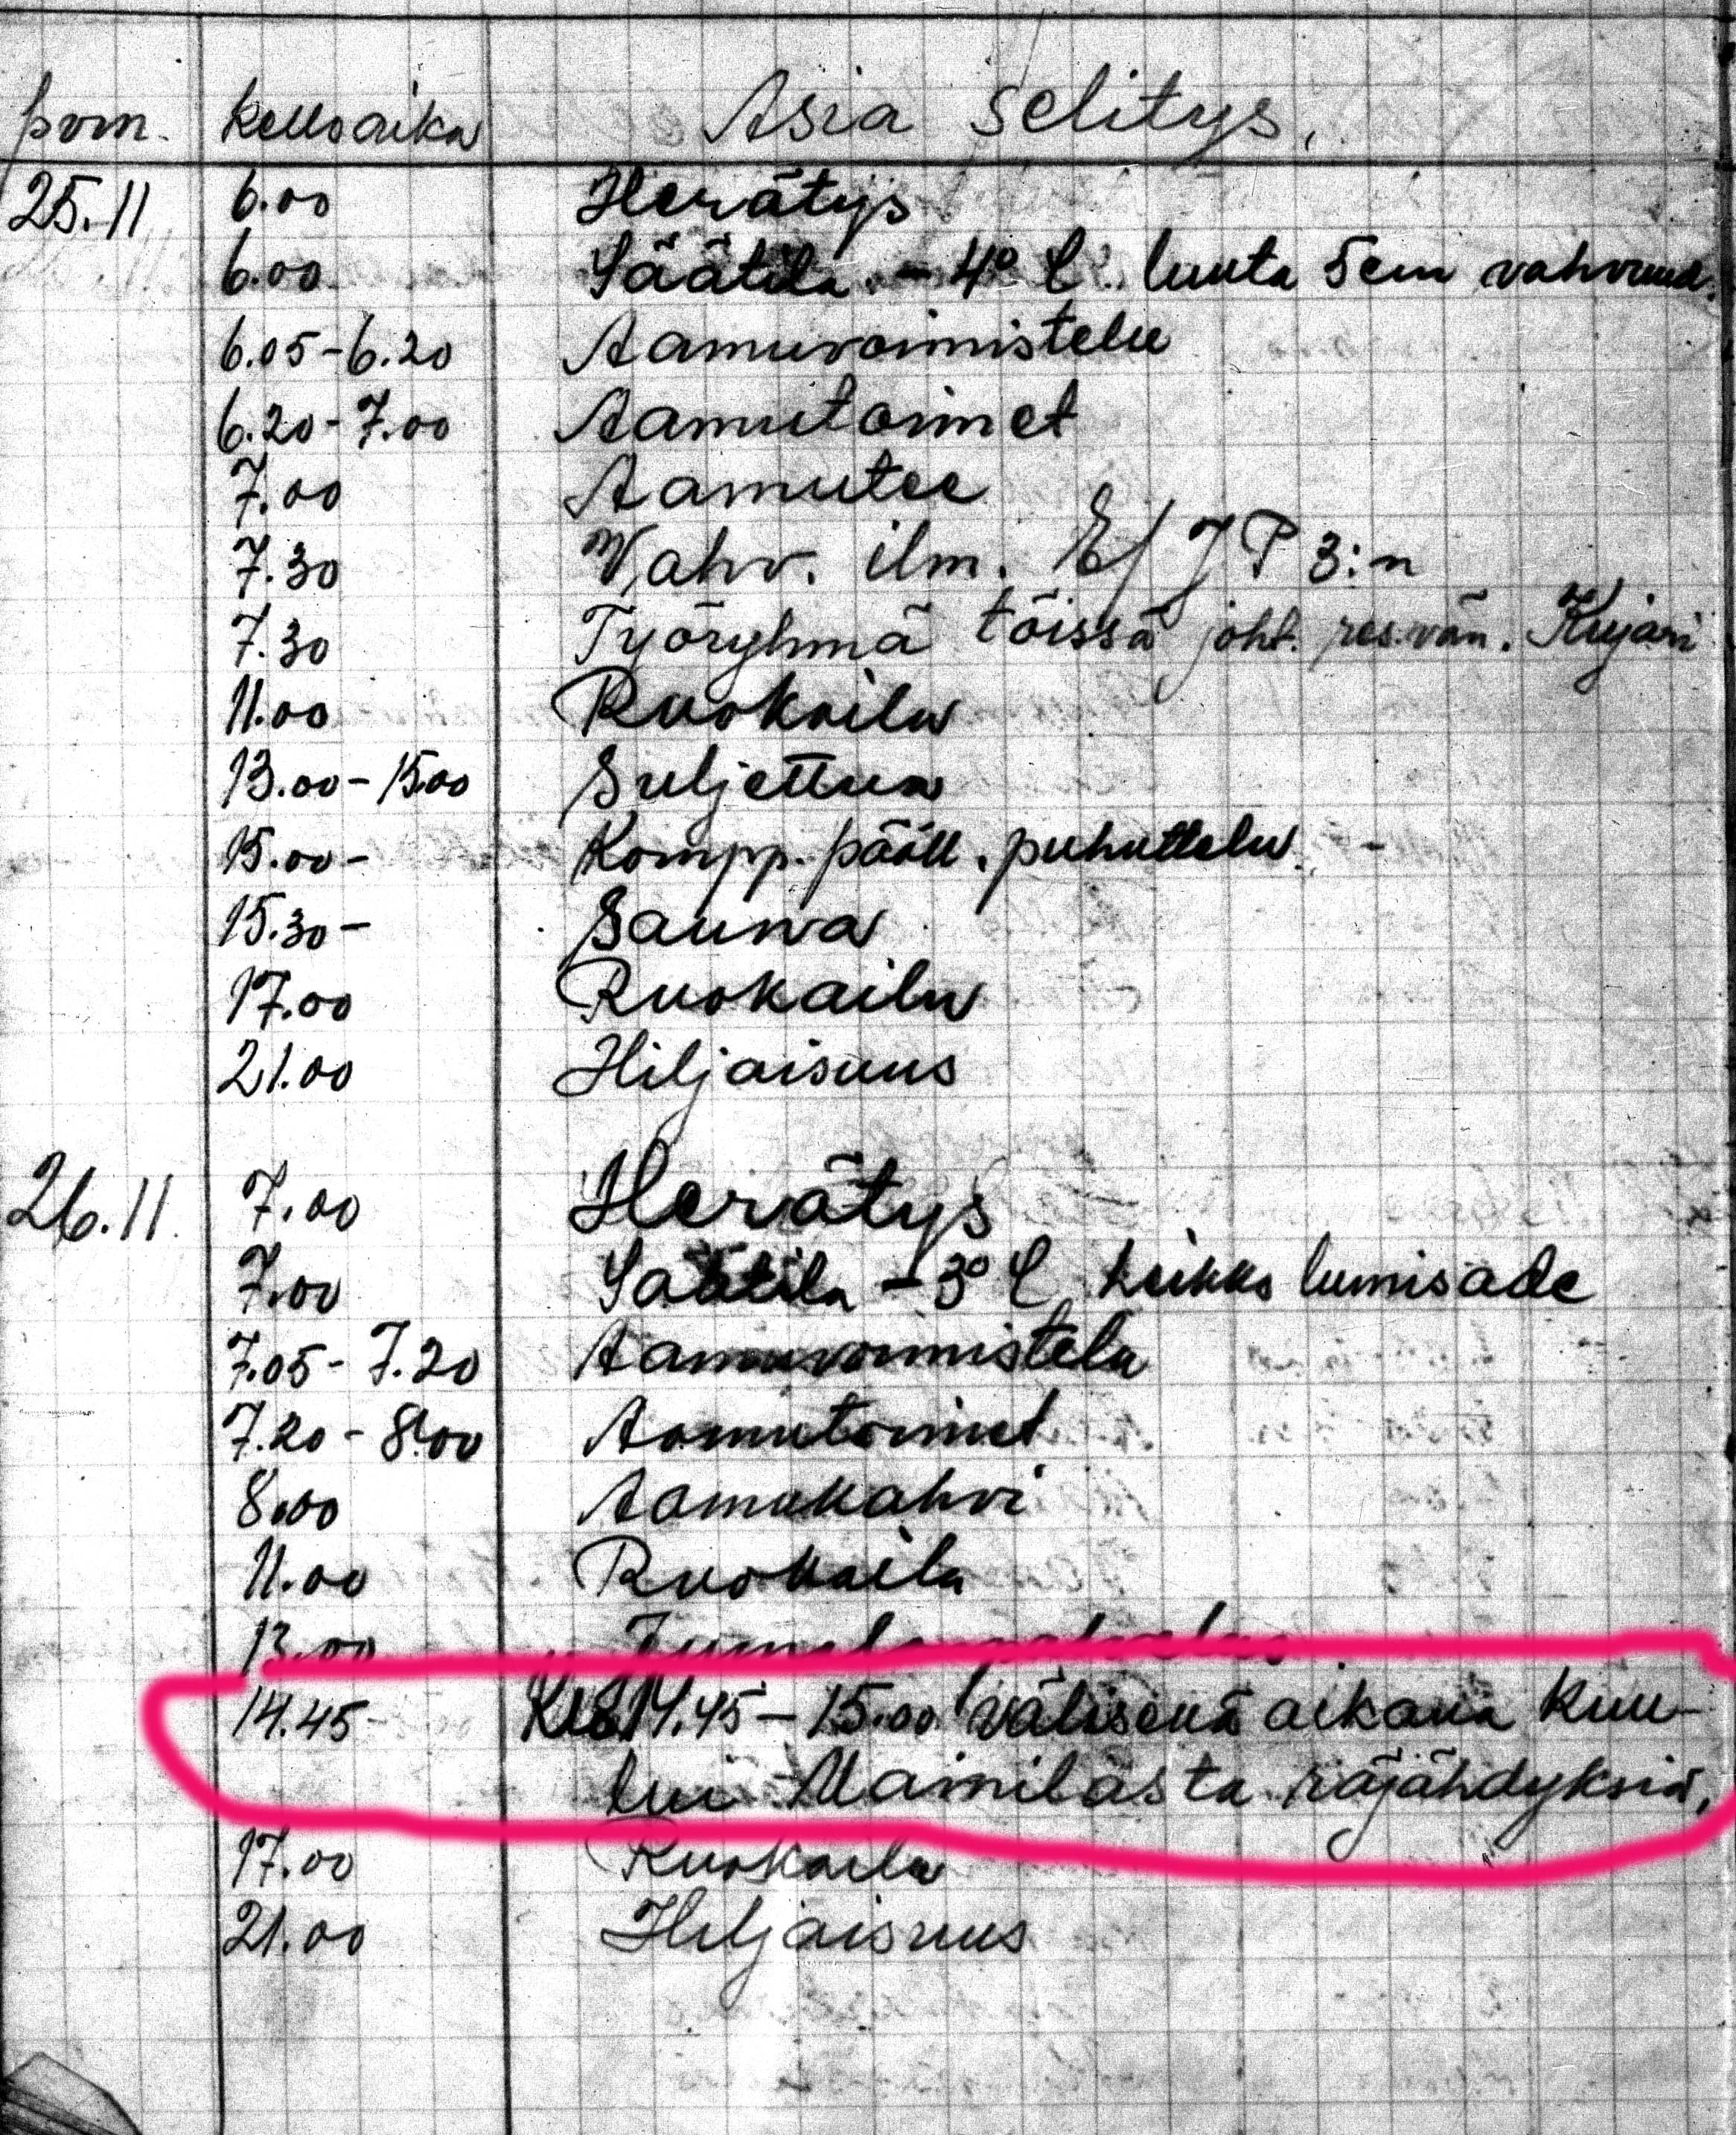 pvm. kelloaika Asia selitys.
25.11 6.00 Herätys
6.00 Säätila - 4° C. lunta 5 cm vahvuud.
6.05-6.20 Aamuvoimistelu
6.20-7.00 Aamutoimet
7.00 Aamutee
7.30 Vahv. ilm. E/JP 3:n
7.30 Työryhmä töissä joht. res.vän. Kujari
11.00 Ruokailu
13.00-15.00 Suljettua
15.00- Kompp. pääll. puhuttelu. -
15.30- Sauna
17.00 Ruokailu
21.00 Hiljaisuus
26.11. 7.00 Herätys
7.00 Säätila -3° C, heikko lumisade
7.05-7.20 Aamuvoimistelu
7.20-8.00 Aamutoimet
8.00 Aamukahvi
11.00 Ruokailu
13.00 Jumalanpalvelus
14.45- Klo 14.45-15.00 välisenä aikana kuu-
lui Mainilasta räjähdyksiä.
17.00 Ruokailu
21.00 Hiljaisuus